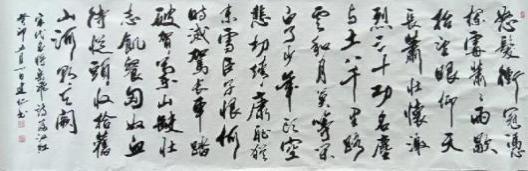 怒髮衝冠憑
欄處蕭蕭雨歇
抬望眼仰天
長嘯壯懷激
烈三十功名塵
與土八千里路
雲和月莫等閒
白了少年頭空
悲切靖康恥猶
未雪臣子恨何
時滅駕長車踏
破賀蘭山缺壯
志飢餐匈奴血
待從頭收拾舊
山河朝天闕
宋代名將岳飛詩滿江紅
癸卯五月一日建仁書